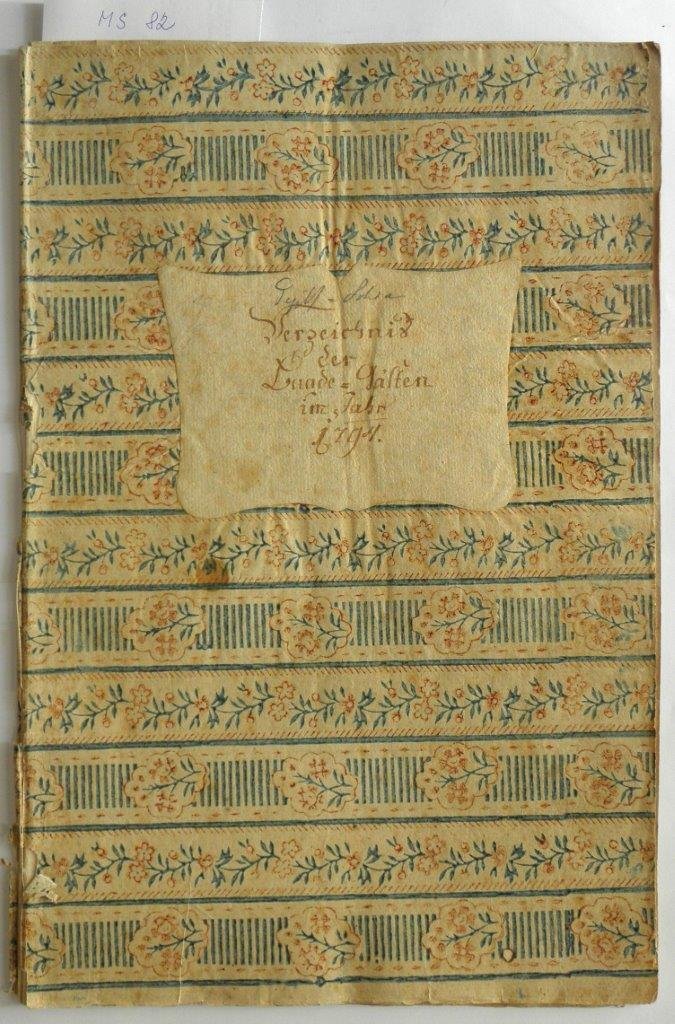 MS 82
Verzeichnis
der
Baade=Gästen
im Jahr
1791.